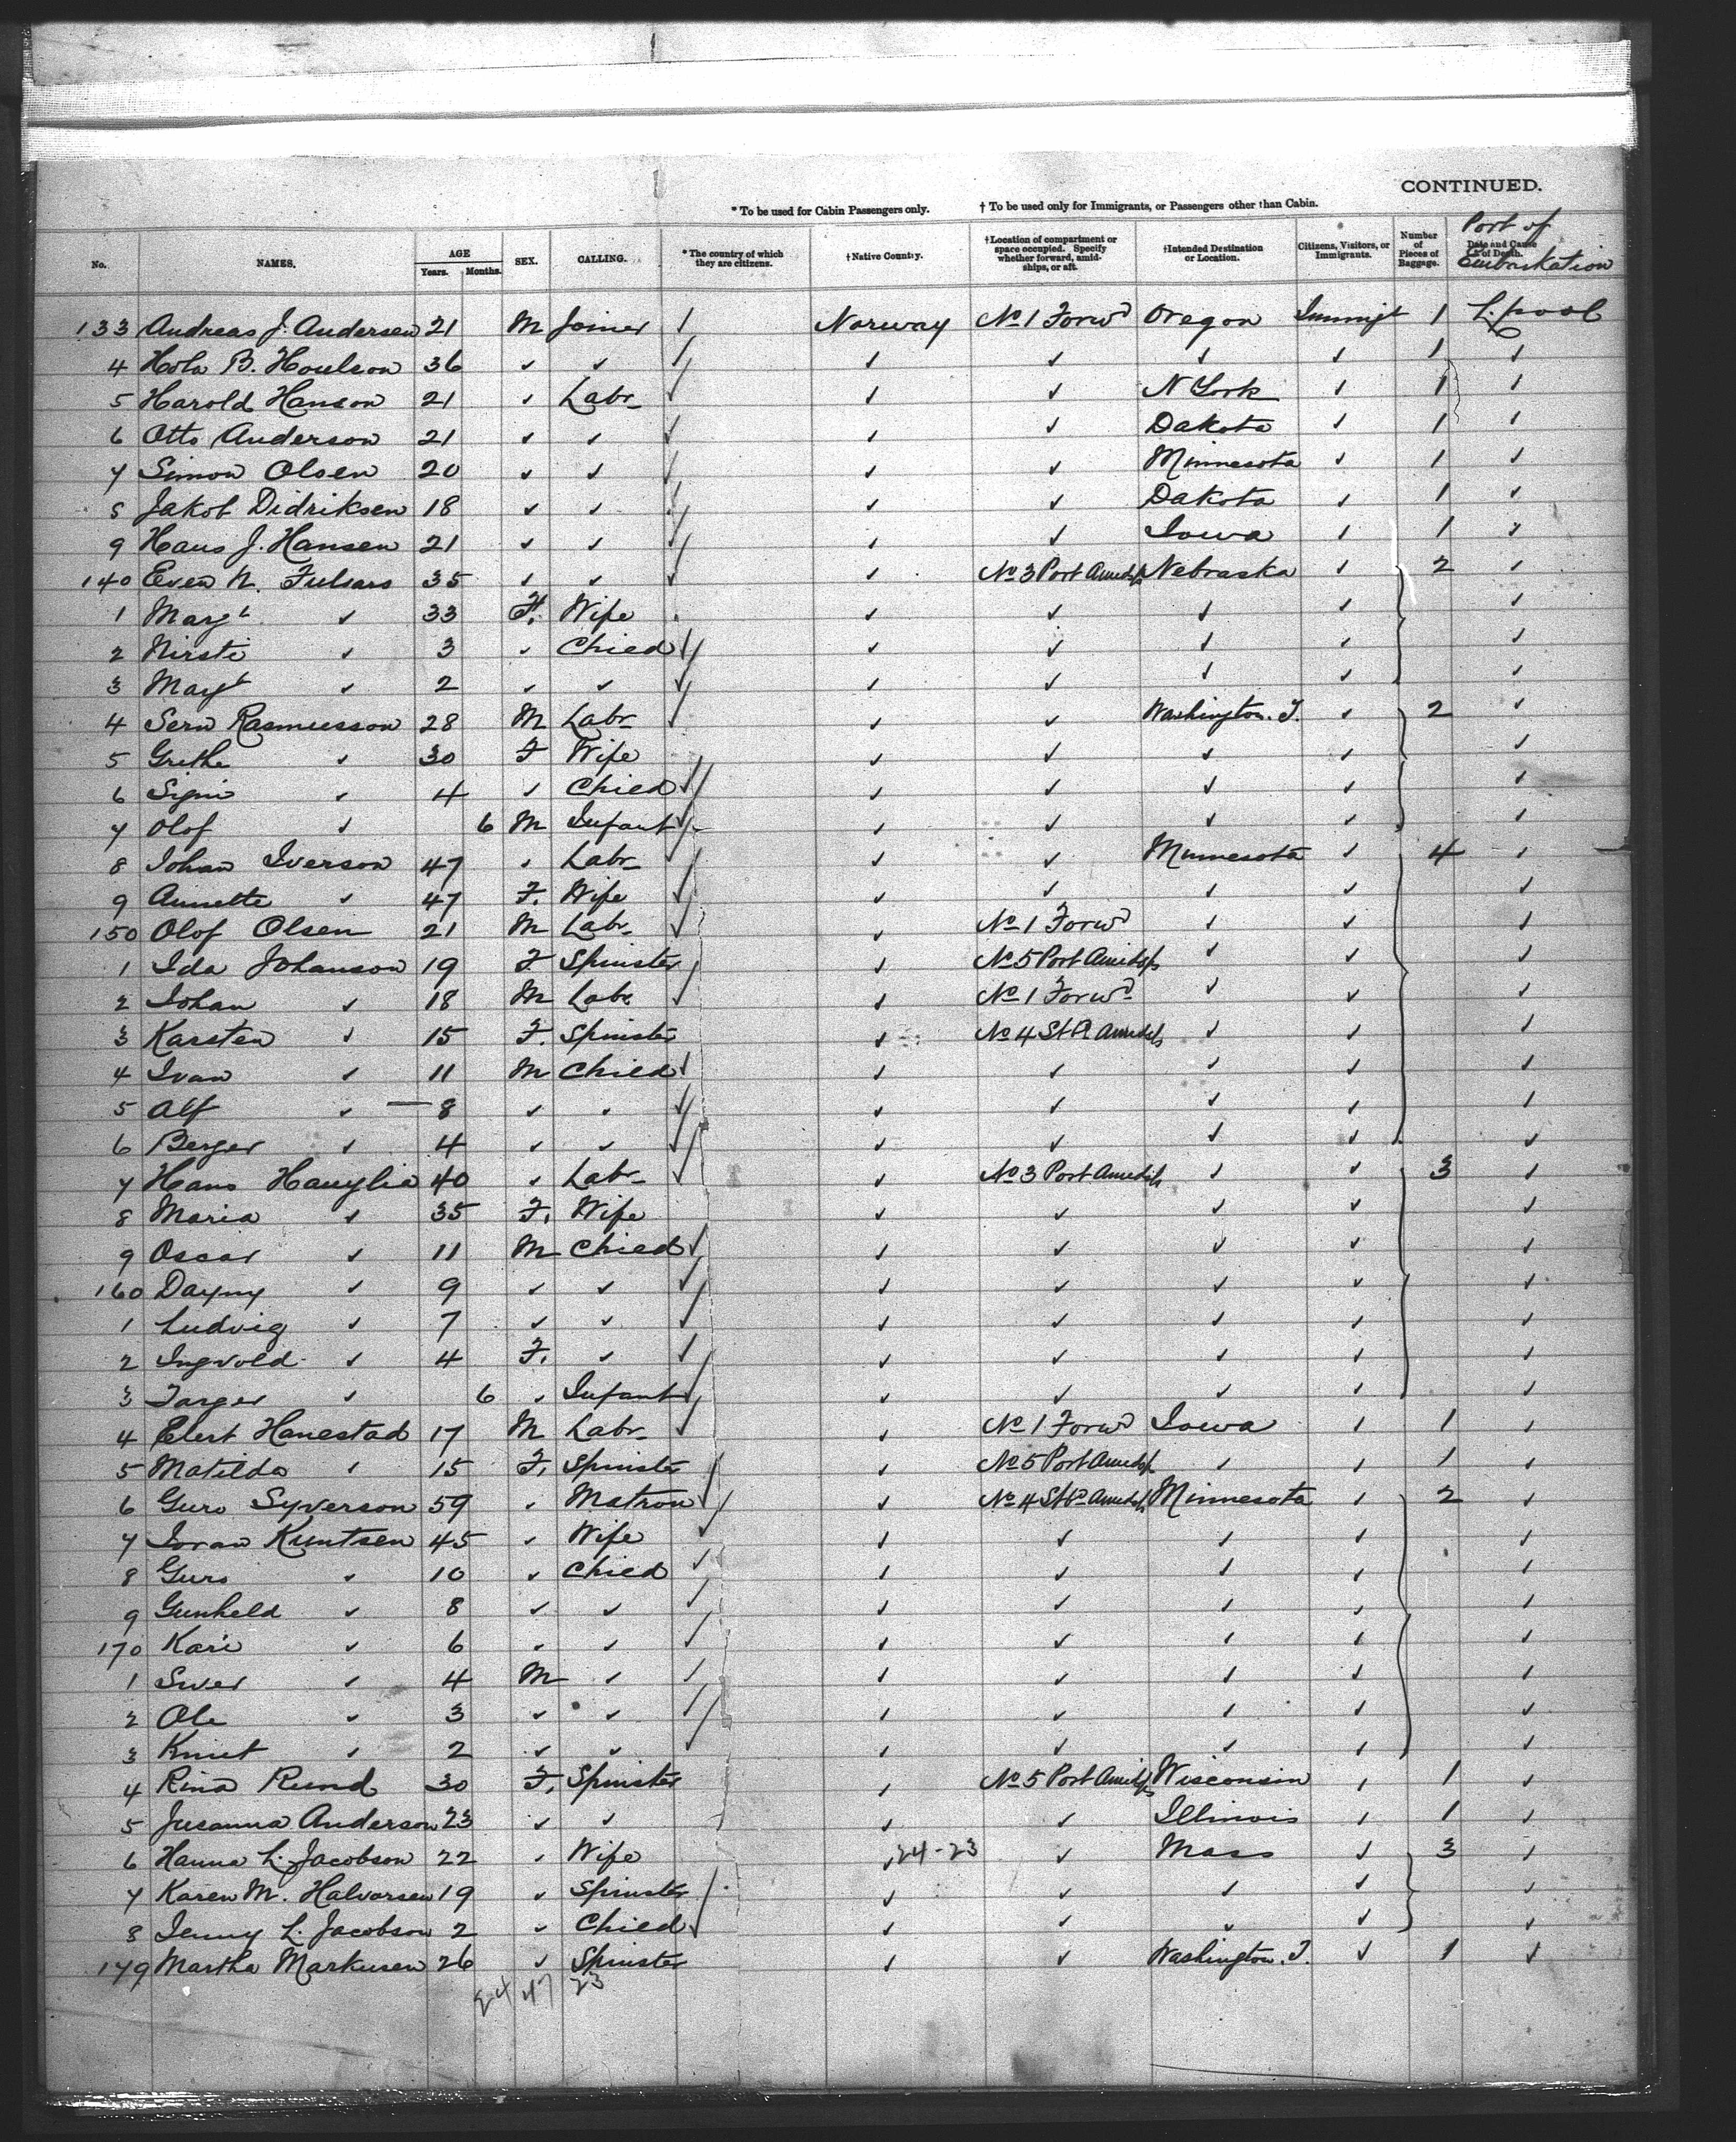 CONTINUED.
* To be used for Cabin Passengers only. † To be used only for Immigrants, or Passengers other than Cabin.
No. NAMES. AGE Years. Months. SEX. CALLING. * The country of which they are citizens. †Native Country. †Location of compartment or space occupied. Specify whether forward, amidships, or aft. †Intended Destination or Location. Citizens, Visitors, or Immigrants. Number of Pieces of Baggage. Date and Cause of Death. Port of Embarkation
133 Andreas J. Andersen 21 M Joiner Norway No 1 Forwd Oregon Immigt 1 L.pool
4 Hola B. Houlson 36 ✓ ✓ ✓ ✓ ✓ ✓ 1 ✓
5 Harold Hanson 21 ✓ Labr ✓ ✓ N York ✓ 1 ✓
6 Otto Anderson 21 ✓ ✓ ✓ ✓ Dakota ✓ 1 ✓
7 Simon Olsen 20 ✓ ✓ ✓ ✓ Minnesota ✓ 1 ✓
8 Jakob Didriksen 18 ✓ ✓ ✓ ✓ Dakota ✓ 1 ✓
9 Hans J. Hansen 21 ✓ ✓ ✓ ✓ Iowa ✓ 1 ✓
140 Even N. 35 ✓ ✓ ✓ No 3 Port Amidsh Nebraska ✓ 2 ✓
1 Margt ✓ 33 F. Wife ✓ ✓ ✓ ✓ ✓
2 Kirsti ✓ 3 ✓ Child ✓ ✓ ✓ ✓ ✓
3 Margt ✓ 2 ✓ ✓ ✓ ✓ ✓ ✓ ✓
4 Sern Rasmusson 28 M Labr ✓ ✓ Washington. T. ✓ 2 ✓
5 Grethe ✓ 30 F Wife ✓ ✓ ✓ ✓ ✓
6 Signi ✓ 4 ✓ Child ✓ ✓ ✓ ✓ ✓
7 Olof ✓ 6 M Infant ✓ ✓ ✓ ✓ ✓
8 Johan Iverson 47 ✓ Labr ✓ ✓ Minnesota ✓ 4 ✓
9 Annette ✓ 47 F. Wife ✓ ✓ ✓ ✓ ✓
150 Olof Olsen 21 M Labr ✓ No 1 Forwd ✓ ✓ ✓
1 Ida Johanson 19 F Spinster ✓ No 5 Port Amidsh ✓ ✓ ✓
2 Johan ✓ 18 M Labr ✓ No 1 Forwd ✓ ✓ ✓
3 Karsten ✓ 15 F. Spinster ✓ No 4 Stbd Amidsh ✓ ✓ ✓
4 Ivan ✓ 11 M Child ✓ ✓ ✓ ✓ ✓
5 Alf ✓ 8 ✓ ✓ ✓ ✓ ✓ ✓ ✓
6 Berger ✓ 4 ✓ ✓ ✓ ✓ ✓ ✓ ✓
7 Hans Hauglia 40 ✓ Labr ✓ No 3 Port Amidsh ✓ ✓ 3 ✓
8 Maria ✓ 35 F. Wife ✓ ✓ ✓ ✓ ✓
9 Oscar ✓ 11 M Child ✓ ✓ ✓ ✓ ✓
160 Dagny ✓ 9 ✓ ✓ ✓ ✓ ✓ ✓ ✓
1 Ludvig ✓ 7 ✓ ✓ ✓ ✓ ✓ ✓ ✓
2 Ingvold ✓ 4 F. ✓ ✓ ✓ ✓ ✓ ✓
3 Targer ✓ 6 ✓ Infant ✓ ✓ ✓ ✓ ✓
4 Elert Hanestad 17 M Labr ✓ No 1 Forwd Iowa ✓ 1 ✓
5 Matilda ✓ 15 F. Spinster ✓ No 5 Port Amidsh ✓ ✓ 1 ✓
6 Guro Syverson 59 ✓ Matron ✓ No 4 Stbd Amidsh Minnesota ✓ 2 ✓
7 Joran Kuntsen 45 ✓ Wife ✓ ✓ ✓ ✓ ✓
8 Guro ✓ 10 ✓ Child ✓ ✓ ✓ ✓ ✓
9 Gunheld ✓ 8 ✓ ✓ ✓ ✓ ✓ ✓ ✓
170 Kari ✓ 6 ✓ ✓ ✓ ✓ ✓ ✓ ✓
1 Siver ✓ 4 M ✓ ✓ ✓ ✓ ✓ ✓
2 Ole ✓ 3 ✓ ✓ ✓ ✓ ✓ ✓ ✓
3 Knut ✓ 2 ✓ ✓ ✓ ✓ ✓ ✓ ✓
4 Rina Rund 30 F. Spinster ✓ No 5 Port Amidsh Wisconsin ✓ 1 ✓
5 Susanna Anderson 23 ✓ ✓ ✓ ✓ Illinois ✓ 1 ✓
6 Hanna L. Jacobson 22 ✓ Wife ✓ 24-23 ✓ Mass ✓ 3 ✓
7 Karen M. Halvorsen 19 ✓ Spinster ✓ ✓ ✓ ✓ ✓
8 Jenny L. Jacobson 2 ✓ Child ✓ ✓ ✓ ✓ ✓
179 Martha Markusen 26 ✓ Spinster ✓ ✓ Washington. T. ✓ 1 ✓
24 47 23